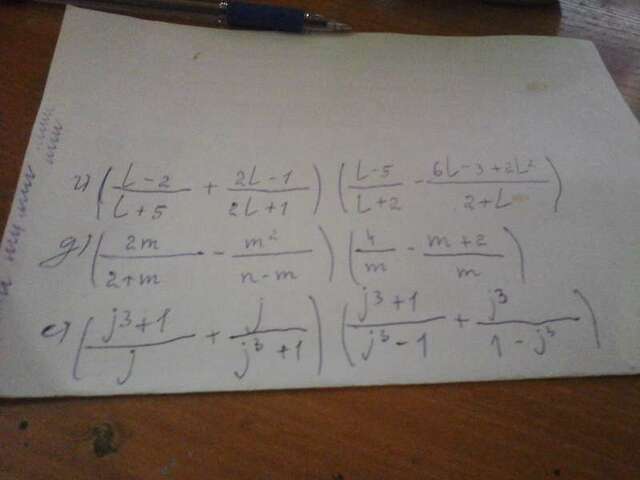 г) ( (L-2)/(L+5) + (2L-1)/(2L+1) ) ( (L-5)/(L+2) - (6L-3+2L²)/(2+L) )
д) ( 2m/(2+m) - m²/(n-m) ) ( 4/m - (m+2)/m )
е) ( (j³+1)/j + j/(j³+1) ) ( (j³+1)/(j³-1) + j³/(1-j³) )